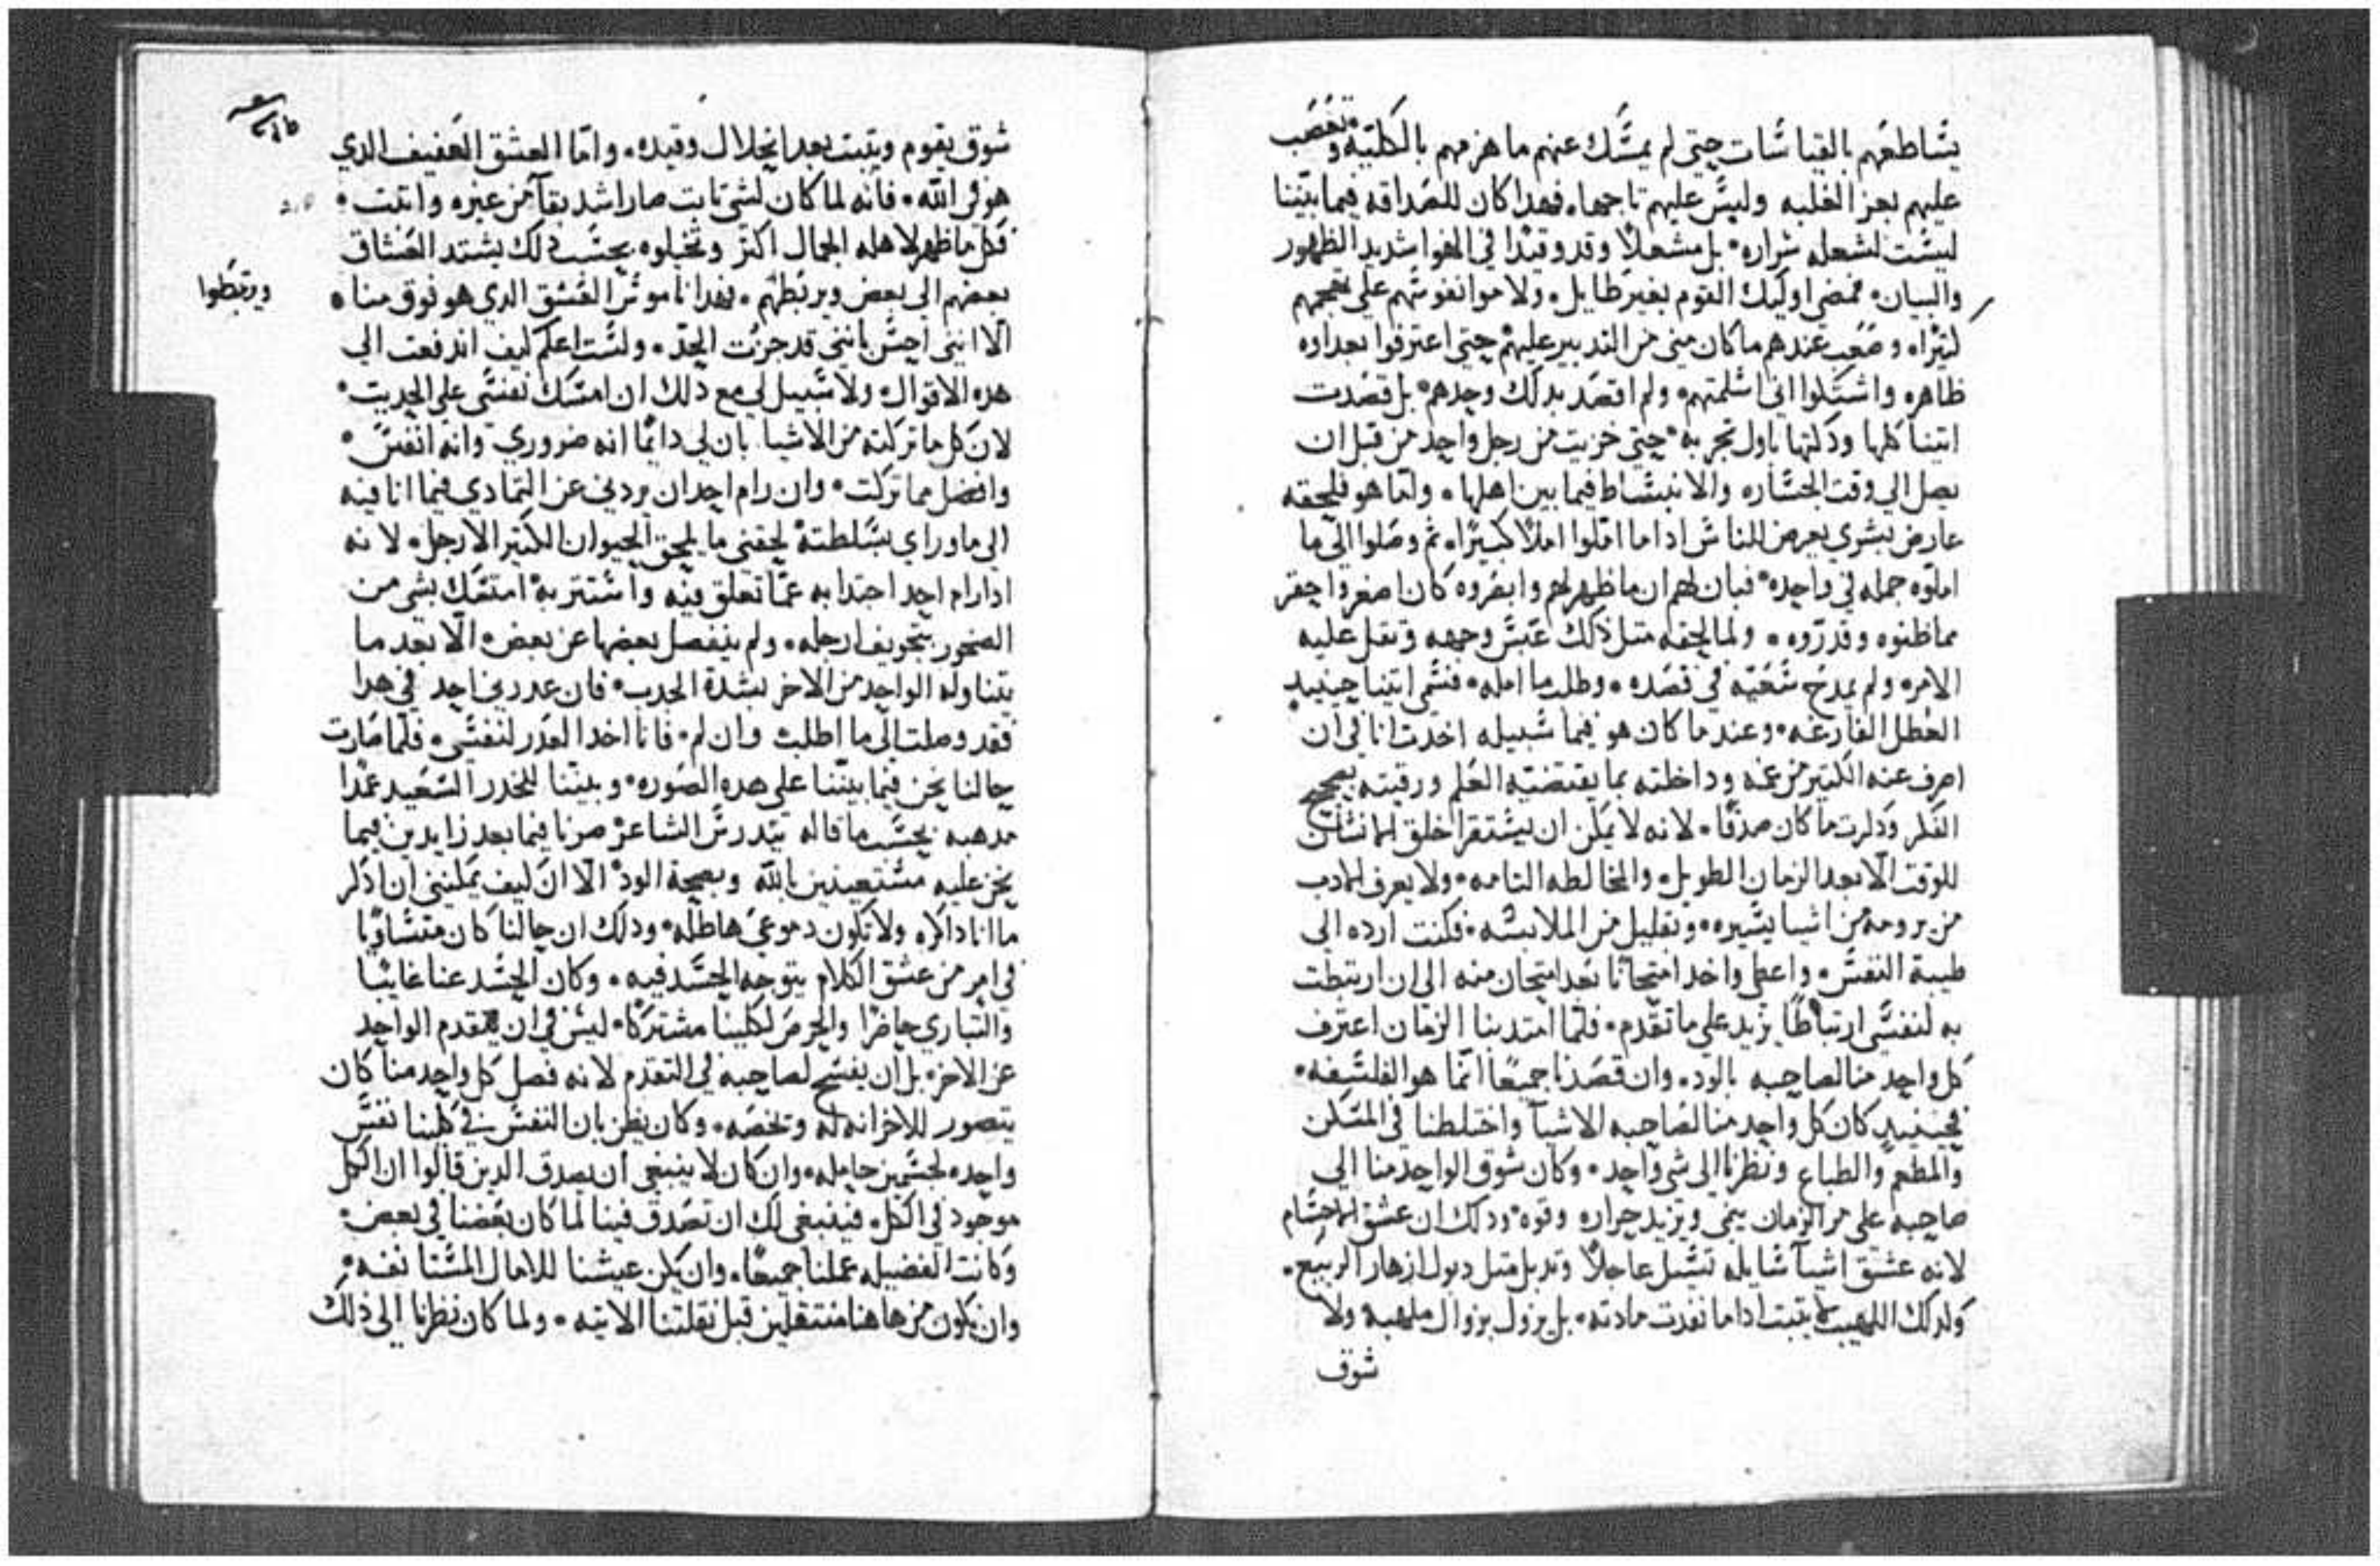 يشاطعهم بالقياسات حتى لم يمسك عنهم ما هزمهم بالكلية وتعصب
عليهم بعز الغلبه وليس عليهم تاجها، فهدا كان للصداقه فيما بيننا
ليست لشعله شراره، بل مشعلاً وقد وقيدا في الهوا شديد الظهور
والبيان، فمضى اوليك القوم بغير طايل، ولاموا نفوسهم على تقحمهم
كثيرا، وصعب عندهم ما كان مني من التدبير عليهم حتى اعترفوا بعداوه
ظاهره واشتكوا اني اسلمتهم، ولم اقصد بدلك وحدهم، بل قصدت
اتينا كلها ودللتها باول تجربه، حتى خزيت من رجل واحد من قبل ان
يصل الى وقت الجساره والانبساط فيما بين اهلها، ولما هو فلحقه
عارض بشري يعرض للناس ادا ما املوا املاً كبيرًا، ثم وصلوا الى ما
املوه جمله في واحده، فبان لهم ان ما ظهر لهم وابصروه كان اصغر واحقر
مما ظنوه وقدروه، ولما لحقه مثل ذلك عبس وجهه وثقل عليه
الامر، ولم يمدح سعيه في قصده، وطلب ما امله، فسمى اتينا حينيد
العطل الفارغه، وعند ما كان هو فيما سبيله اخدت انا في ان
اصرف عنه الكتير من غمه وداخلته بما يقتضيه العلم ورقيته بصحيح
الفكر وذكرت ما كان صدقًا، لانه لا يمكن ان يستقر اخلق الانسان
للوقت الا بعد الزمان الطويل، والمخالطه التامه، ولا يعرف الادب
من يرومه من اشيا يسيره، وبقليل من الملابسه، فكنت ارده الى
طيبة النفس، واعطي واخد امتحانًا بعد امتحان منه الى ان ارتبطت
به لنفسي ارتباطًا يزيد على ما تقدم، فلما امتد بنا الزمان اعترف
كل واحد منا لصاحبه بالود، وان قصدنا جميعًا انما هو الفلسفه،
فحينيد كان كل واحد منا لصاحبه الاشيا واختلطنا في المسكن
والمطعم والطباع ونظرنا الى شي واحد، وكان شوق الواحد منا الى
صاحبه على مر الزمان ينمى ويزيد حراره وقوه، ودلك ان عشق الاجسام
لانه عشق اشيا سايله تسيل عاجلاً وتدبل مثل دبول ازهار الربيع،
ولدلك اللهيب لا يتبت ادا ما نفدت مادته، بل يزول بزوال ملهبه ولا
شوق
شوق يقوم ويتبت بعد انحلال وقيده، واما العشق العفيف الدي
هو في الله، فانه لما كان لشي تابت صار اشد بقآ من غيره واتبت،
فكل ما ظهر لاهله الجمال اكثر وتخيلوه بحسب دلك يشتد العشاق
بعضهم الى بعض ويربطهم، فهدا ناموس العشق الدي هو فوق منا،
ويرتبطوا
الا انني احس بانني قد جزت الحد، ولست اعلم كيف اندفعت الى
هده الاقوال، ولا سبيل لي مع ذلك ان امسك نفسي على الحديث،
لان كل ما تركته من الاشيا بان لي دايمًا انه ضروري وانه انفس،
وافضل مما تركت، وان رام احد ان يردني عن التمادي فيما انا فيه
الى ما وراي بسلطته لحقني ما يلحق الحيوان الكتير الارجل، لانه
ادا رام احد اجتدابه عما تعلق فيه واستتر به امتسك بشي من
الصخور بتجويف ارجله، ولم ينفصل بعضها عن بعض، الا بعد ما
يتناوله الواحد من الاخر بشدة الجدب، فان عدرني احد في هدا
فقد وصلت الى ما اطلب وان لم، فانا اخد العدر لنفسي، فلما صارت
حالنا نحن فيما بيننا على هده الصوره، وبنينا للخدر السعيد عمدًا
مدهبه بحسب ما قاله بيندرس الشاعر صرنا فيما بعد زايدين فيما
نحن عليه مستعينين بالله وبصحة الود، الا ان كيف يمكنني ان اذكر
ما انا ذاكره ولا تكون دموعي هاطله، ودلك ان حالنا كان متساويًا
في امر من عشق الكلام يتوجه الحسد فيه، وكان الحسد عنا غايبًا
والتباري حاضرًا والحرص لكلينا مشتركا، ليس في ان يتقدم الواحد
عن الاخر، بل ان يفسح لصاحبه في التقدم لانه فصل كل واحد منا كان
يتصور للاخر انه له وتخصه، وكان يظن بان النفس في كلينا نفس
واحده لجسمين حامله، وان كان لا ينبغي ان يصدق الدين قالوا ان الكل
موجود في الكل، فينبغي لك ان تصدق فينا لما كان بعضنا في بعض،
وكانت الفضيله عملنا جميعًا، وان يكن عيشنا للامال المستانفه،
وان نكون من هاهنا منتقلين قبل نقلتنا الاتيه، ولما كان نظرنا الى ذلك